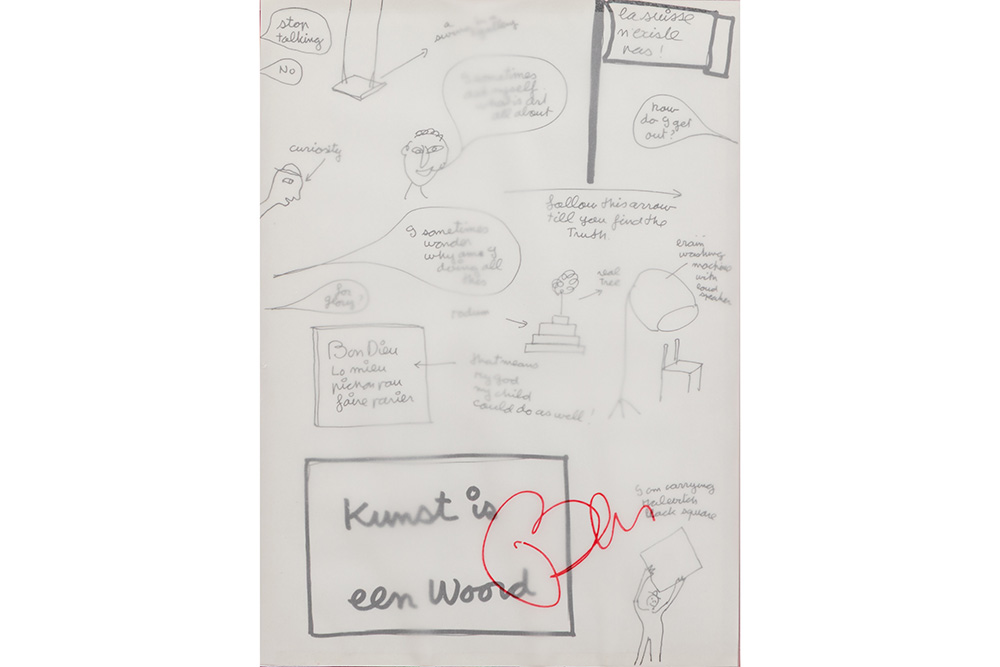 stop
talking
No
a
la suisse
n'existe
pas!
I sometimes
ask myself
what is art
all about
how
do I get
out?
curiosity
follow this arrow
till you find the
Truth.
I sometimes
wonder
why am I
doing all
this
for
glory?
real
tree
washing
machine
with
loud
speaker
Bon Dieu
Lo mieu
pichon pou
faire parier
that means
my god
my child
could do as well!
Kunst is
een Woord
Ben
I am carrying
Malevitch
black square